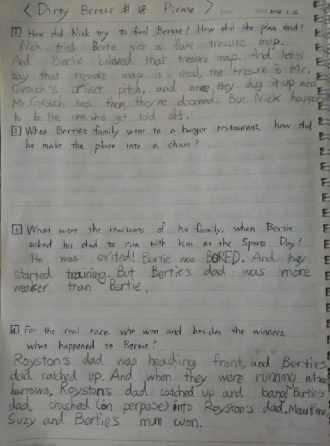 < Dirty Bertie # 18 Pirate >
1 How did Nick try to fool Bertie? How did the plan end?
Nick tried Bertie with a fake tresure map.
And Bertie beleved that tresure map. And let's
say that tresure map is real, the tresure is Mr.
Grouch's criket pitch, and once they dug it up and
Mr. Grouch sees them, they're doomed. But Nick happen
to be the one who get told off.
2 When Bertie's family went to a burger restaurant, how did
he make the place into a chaos?
3 What were the reactions of his family, when Bertie
asked his dad to run with him at the Sports Day?
He was exited! Bertie was BORED. And they
started training. But Bertie's dad was more
weaker than Bertie.
4 For the real race who won and besides the winners
what happened to Bertie?
Royston's dad was heading front, and Bertie's
dad catched up. And when they were running wheel
barrows, Royston's dad catched up and bang! Bertie's
dad crashed (on perpose) into Royston's dad. Meantime,
Suzy and Bertie's mum won.